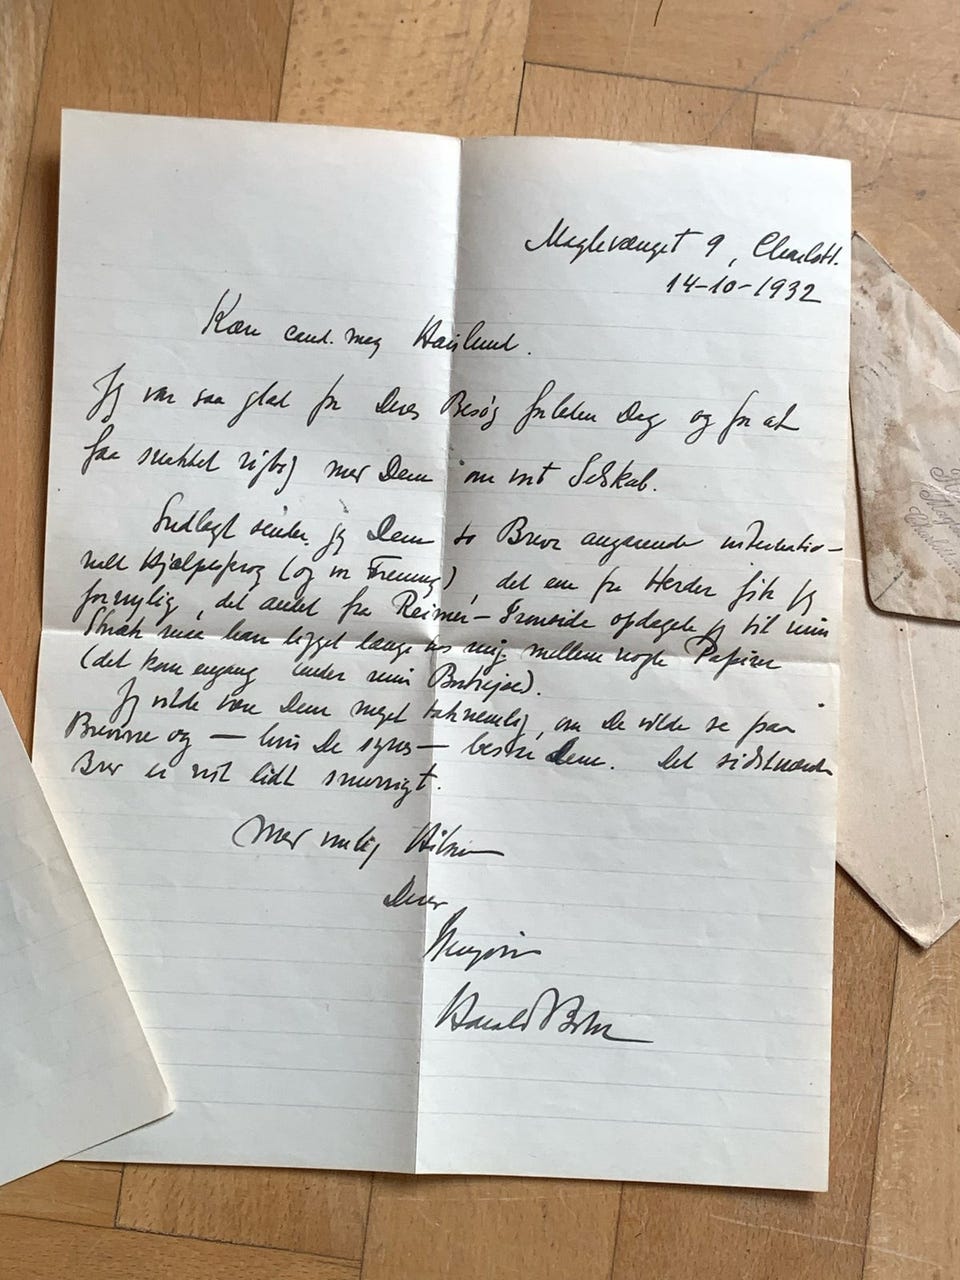 Maglevænget 9, Charlottl.
14-10-1932
Kære cand. mag Haislund.
Jeg var saa glad for Deres Besøg forleden Dag og for at
faa snakket rigtig med Dem om vort Selskab.
Indlagt sender jeg Dem to Breve angaaende internatio-
nalt Hjælpesprog (og vor Forening), det ene fra Herder fik jeg
fornylig, det andet fra Reimer-Ironside opdagede jeg til min
Skræk mea have ligget længe hos mig mellem nogle Papirer
(det kom engang under min Bortrejse).
Jeg vilde være Dem meget taknemlig, om De vilde se paa
Brevene og — hvis De synes — besvare dem. Det sidstnævnte
Brev er vist lidt snurrigt.
Med venlig Hilsen
Deres
Harald Bohr